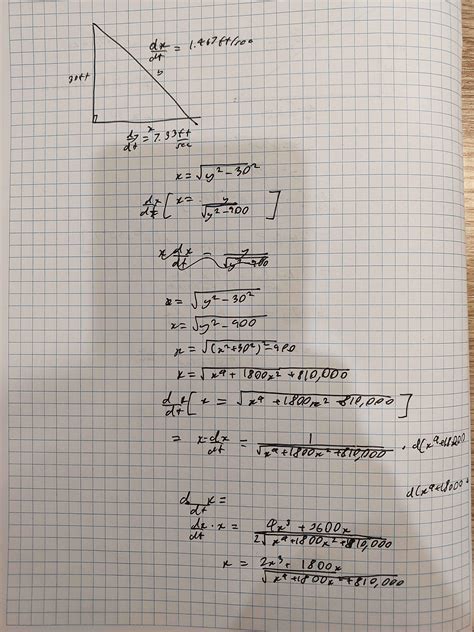 dx/dt = 1.467 ft/sec
30ft
s
x
dx/dt = 7.33 ft/sec
x = √(y² - 30²)
dx/dt [ x = y/√(y² - 900) ]
x dx/dt = y/√(y² - 900)
x = √(y² - 30²)
x = √(y² - 900)
x = √((x² + 30²)² - 900)
x = √(x⁴ + 1800x² + 810,000)
d/dt [ x = √(x⁴ + 1800x² + 810,000) ]
= x·dx/dt = 1/√(x⁴ + 1800x² + 810,000) · d(x⁴ + 1800
d(x⁴ + 1800 +
d/dt x =
dx/dt · x = 4x³ + 3600x / 2√(x⁴ + 1800x² + 810,000)
x = 2x³ + 1800x / √(x⁴ + 1800x² + 810,000)